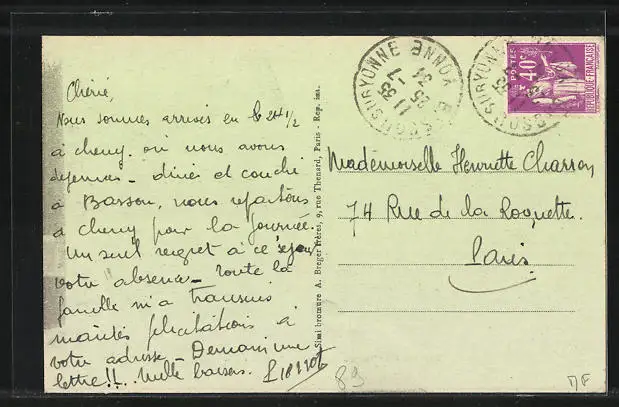 Chérie,
Nous sommes arrivés en 2H 1/2
à cheny où nous avons
déjeuner - dinés et couché
à Bassou, nous repartons
à cheny pour la journée.
Un seul regret à ce séjour
votre absence - toute la
famille m'a transmis
maintes félicitations à
votre adresse - Demain une
lettre!!.. mille baisers.
Simi bromure A. Breger Frères, 9, rue Thenard, Paris - Rep. int.
BASSOU SUR YONNE
11-7
35
POSTES
40c
RÉPUBLIQUE FRANÇAISE
Mademoiselle Henriette Chasson
74 Rue de la Roquette.
Paris
89